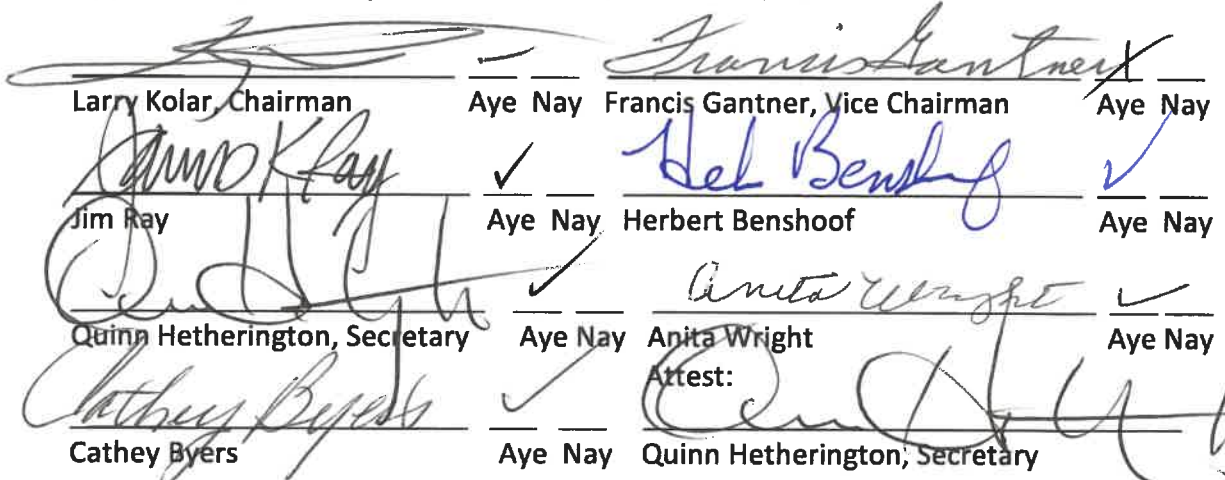 Francis Gantner
Larry Kolar, Chairman Aye Nay Francis Gantner, Vice Chairman Aye Nay
Jim Ray Aye Nay Herbert Benshoof Aye Nay
Anita Wright
Quinn Hetherington, Secretary Aye Nay Anita Wright Aye Nay
Attest:
Cathey Byers
Cathey Byers Aye Nay Quinn Hetherington, Secretary